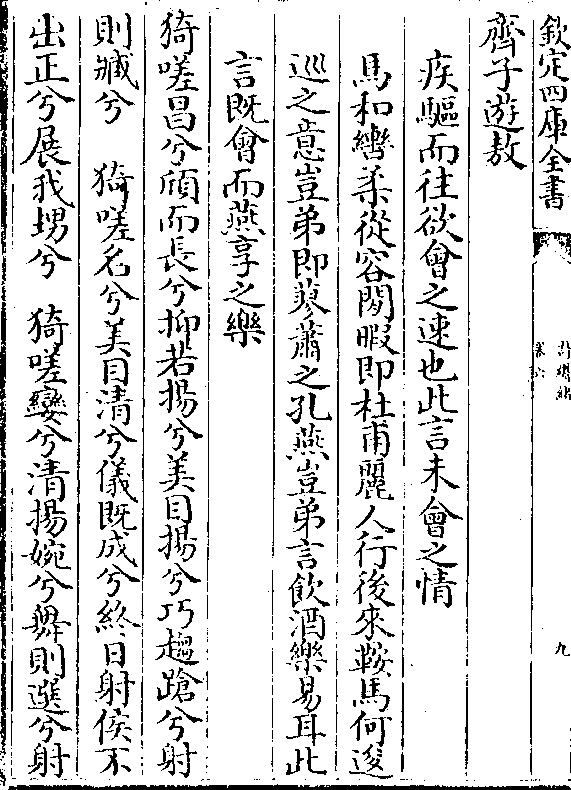 欽定四庫全書
卷六
九
齊子遊敖
疾驅而往欲會之速也此言未會之情
馬和轡柔從容閑暇即杜甫麗人行後來鞍馬何逡
巡之意豈弟即蓼蕭之孔燕豈弟言飲酒樂易耳此
言既會而燕享之樂
猗嗟昌兮頎而長兮抑若揚兮美目揚兮巧趨蹌兮射
則臧兮　猗嗟名兮美目清兮儀既成兮終日射侯不
出正兮展我甥兮　猗嗟孌兮清揚婉兮舞則選兮射